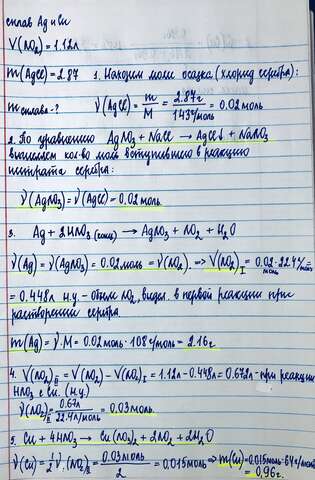 сплав Ag и Cu
V(NO₂) = 1.12л
m(AgCl) = 2.87 1. Находим моли осадка (хлорид серебра):
m сплава - ? ν(AgCl) = m/M = 2.87г/143г/моль = 0.02 моль
2. По уравнению AgNO₃ + NaCl → AgCl↓ + NaNO₃
вычисляем кол-во моль вступившего в реакцию
нитрата серебра:
ν(AgNO₃) = ν(AgCl) = 0.02 моль
3. Ag + 2HNO₃ (конц) → AgNO₃ + NO₂ + H₂O
ν(Ag) = ν(AgNO₃) = 0.02 моль = ν(NO₂) ⇒ V(NO₂)I = 0.02 моль · 22.4 л/моль =
= 0.448л н.у. - объем NO₂, выдел. в первой реакции при
растворении серебра
m(Ag) = ν · M = 0.02моль · 108 г/моль = 2.16г
4. V(NO₂)II = V(NO₂) - V(NO₂)I = 1.12л - 0.448л = 0.672л - при реакции
HNO₃ с Cu. (н.у.)
ν(NO₂)II = 0.67л/22.4л/моль = 0.03моль.
5. Cu + 4HNO₃ → Cu(NO₃)₂ + 2NO₂ + 2H₂O
ν(Cu) = 1/2 ν(NO₂)II = 0.03моль/2 = 0.015моль ⇒ m(Cu) = 0.015моль · 64г/моль =
= 0,96г.